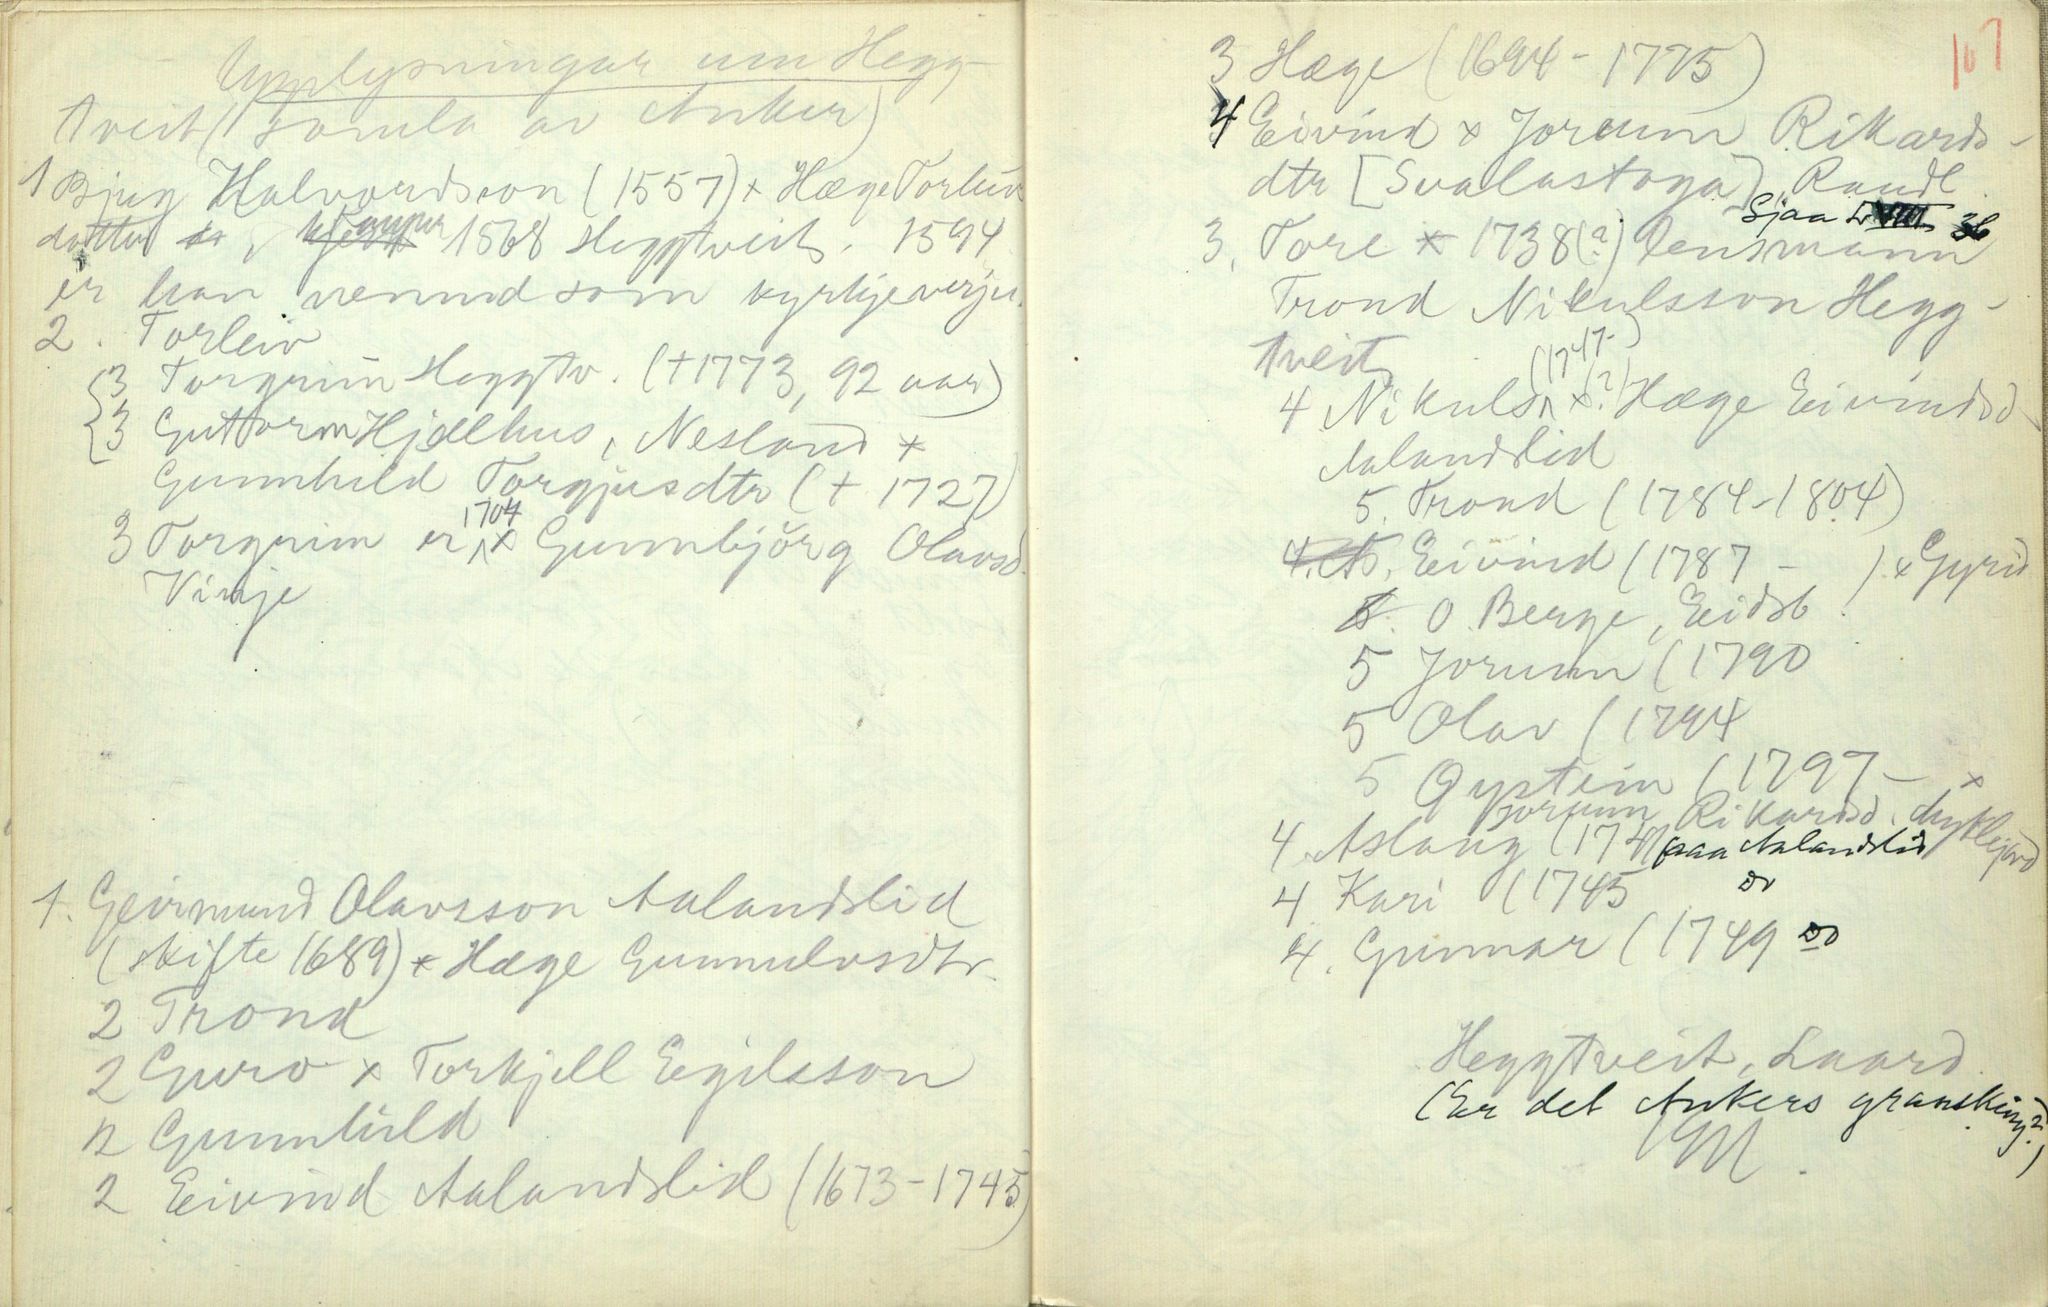 Upplysningar um Hegg-
tveit (samla av Anker)
1 Bjug Halvordsson (1557) x Hæge Torleivs
dotter, kjøper 1568 Heggtveit. 1594
er han nemnd som kyrkjeverju.
2. Torleiv
3 Torgrim Heggtv. (+1773, 92 aar)
3 Guttorm Hjælhus, Nesland x
Gunnhild Torgjusdtr (+ 1727)
3 Torgrim er 1704 x Gunnbjörg Olavsd.
Vinje
1. Geirmund Olavsson Aalandslid
(skifte 1689) x Hæge Gunnulvsdtr.
2 Trond
2 Guro x Torkjell Egilsson
2 Gunnhild
2 Eivind Aalandslid (1673-1745)
107
3 Hæge (1694-1775)
4 Eivind x Jorunn Rikards-
dtr [Svalastoga], Raudl.
Sjaa L VIII 36
3. Tore x 1738(?) lensmann
Trond Nikulsson Hegg-
tveit
(1747-)
4 Nikuls x (?) Hæge Eivindsd
Aalandslid
5. Trond (1784-1804)
Eivind (1787 - ) x Gyrid
O. Berge, Eidsb.
5 Jorunn (1790
5 Olav (1794
5 Øystein (1797- x
Jorunn Rikardsd.
4. Aslaug (174 paa Aalandslid
4 Kari (1745 do
4. Gunnar (1749 do
Heggtveit, Laard.
(Er det Ankers gransking?)